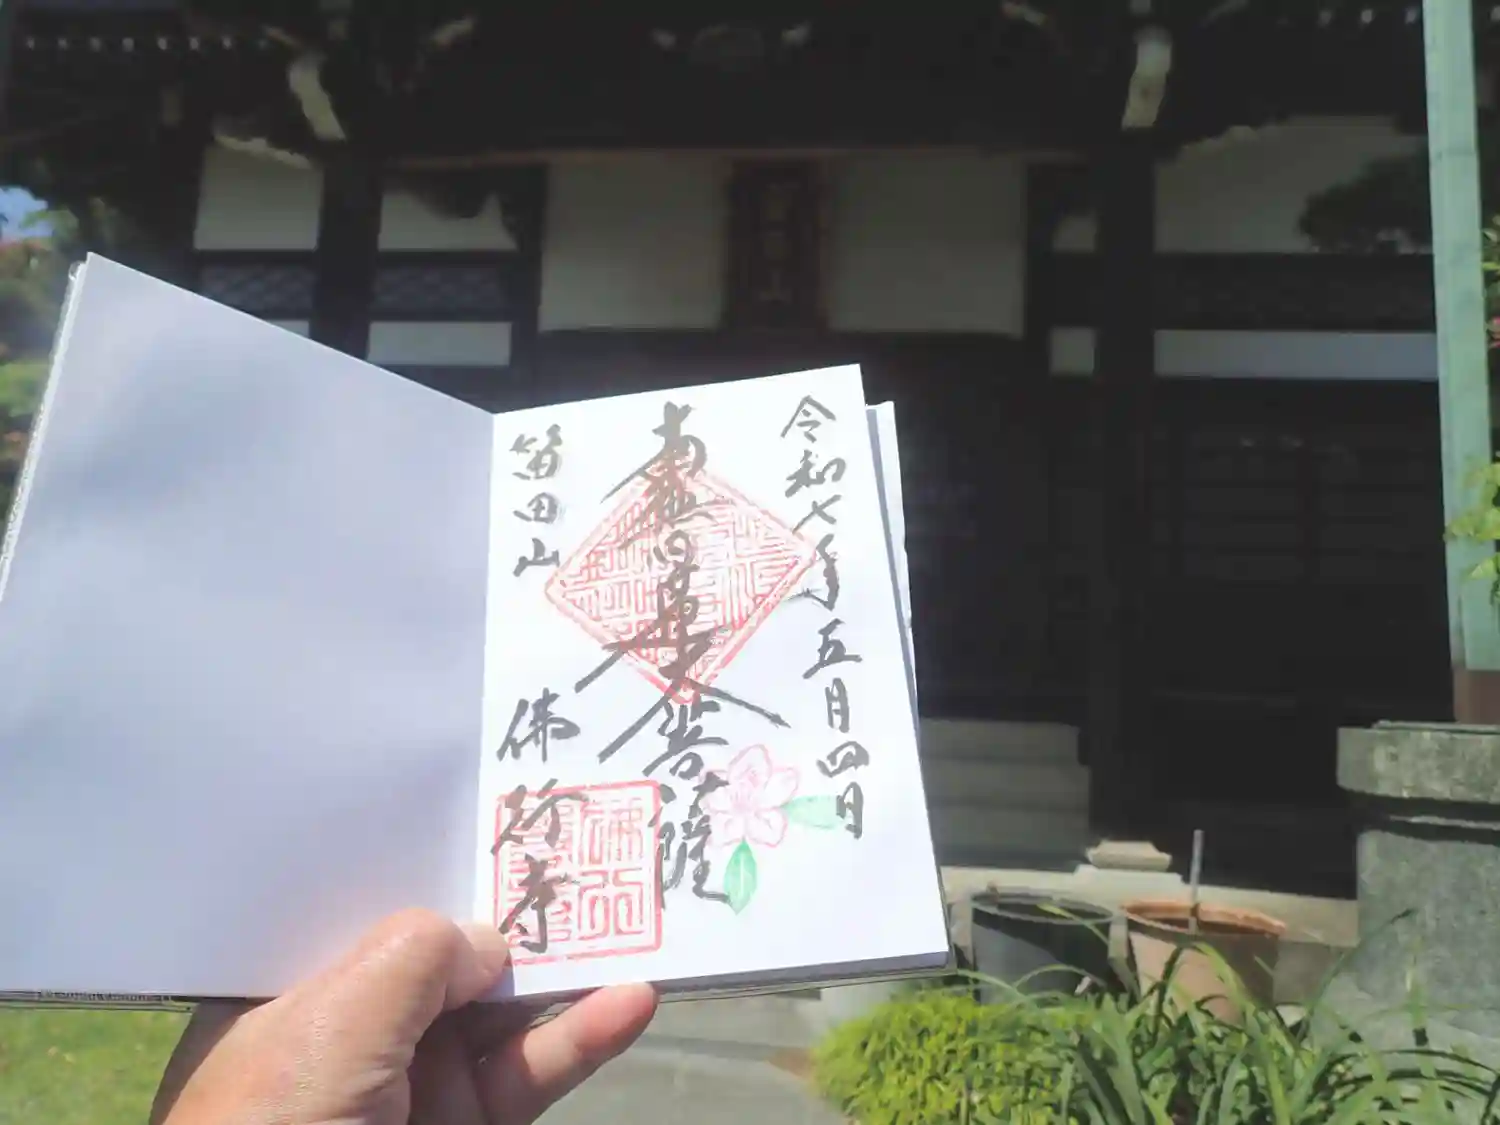 令和七年五月四日
南無日蓮大菩薩
笛田山
佛行寺